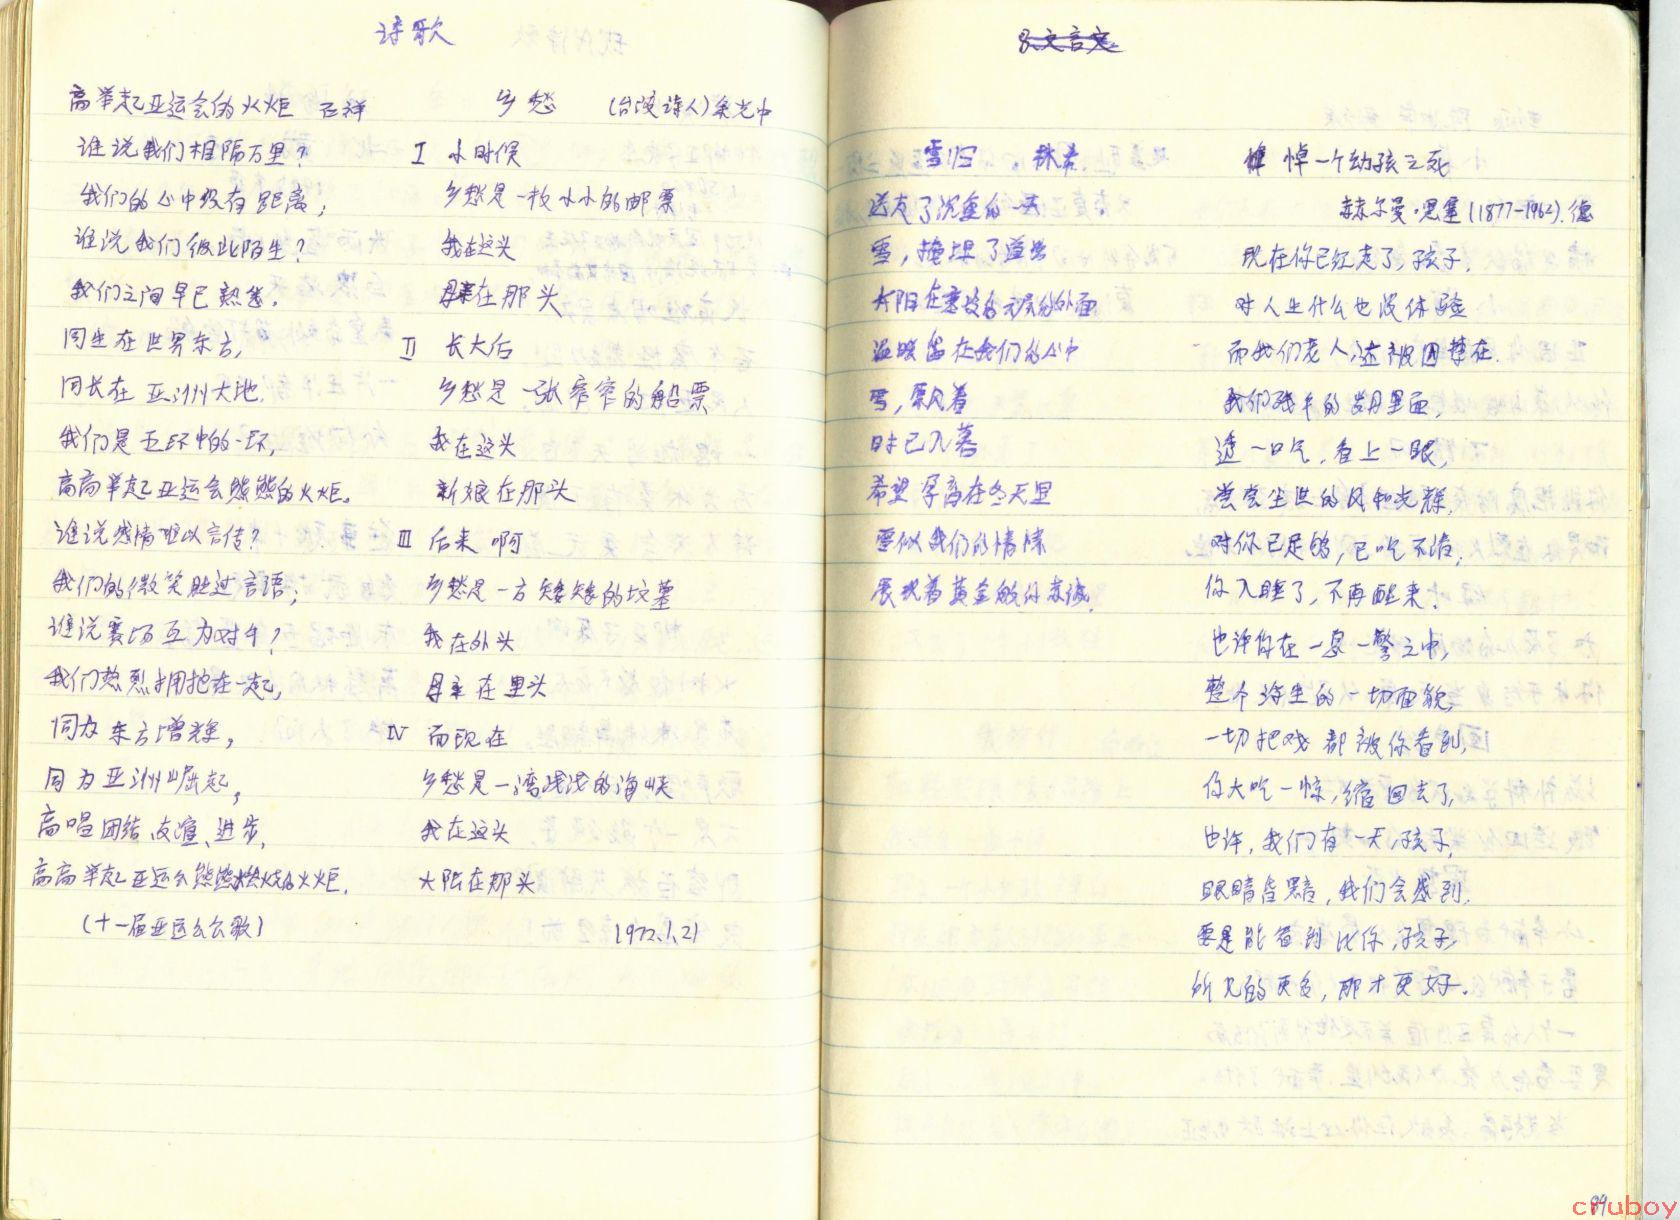 诗歌
高举起亚运会的火炬
谁说我们相隔万里?
我们的心中没有距离;
谁说我们彼此陌生?
我们之间早已熟悉.
同生在世界东方,
同长在亚洲大地.
我们是五环中的一环,
高高举起亚运会熊熊的火炬.
谁说感情难以言传?
我们的微笑胜过言语;
谁说赛场互为对手?
我们热烈拥抱在一起,
同为东方增辉,
同为亚洲崛起,
高唱团结、友谊、进步,
高高举起亚运会熊熊燃烧的火炬.
(十一届亚运会会歌)
乡愁 (台湾诗人)余光中
I 小时候
乡愁是一枚小小的邮票
我在这头
母亲在那头
II 长大后
乡愁是一张窄窄的船票
我在这头
新娘在那头
III 后来啊
乡愁是一方矮矮的坟墓
我在外头
母亲在里头
IV 而现在
乡愁是一湾浅浅的海峡
我在这头
大陆在那头
1972.1.21
8.文言文
雪归
送走了沉重的一天
雪,掩埋了道路
太阳在寒披的外面
温暖留在我们的心中
雪,飘着
时已入暮
希望孕育在冬天里
要似我们的情愫
展现着黄金般的赤诚.
悼一个幼孩之死
赫尔曼·思塞(1877-1962).德
现在你已经走了,孩子.
对人生什么也没体验
而我们老人,还被囚禁在.
我们残年的岁月里面,
透一口气,看上一眼,
尝尝尘世的风和光辉.
对你已足够,已吃不消,
你入睡了,不再醒来.
也许你在一息一瞥之中,
整个浮生的一切面貌,
一切把戏都被你看到,
你大吃一惊,缩回去了,
也许,我们有一天,孩子,
眼睛昏黑,我们会感到.
要是能看到比你,孩子,
所见的更多,那才更好.
89
cruboy